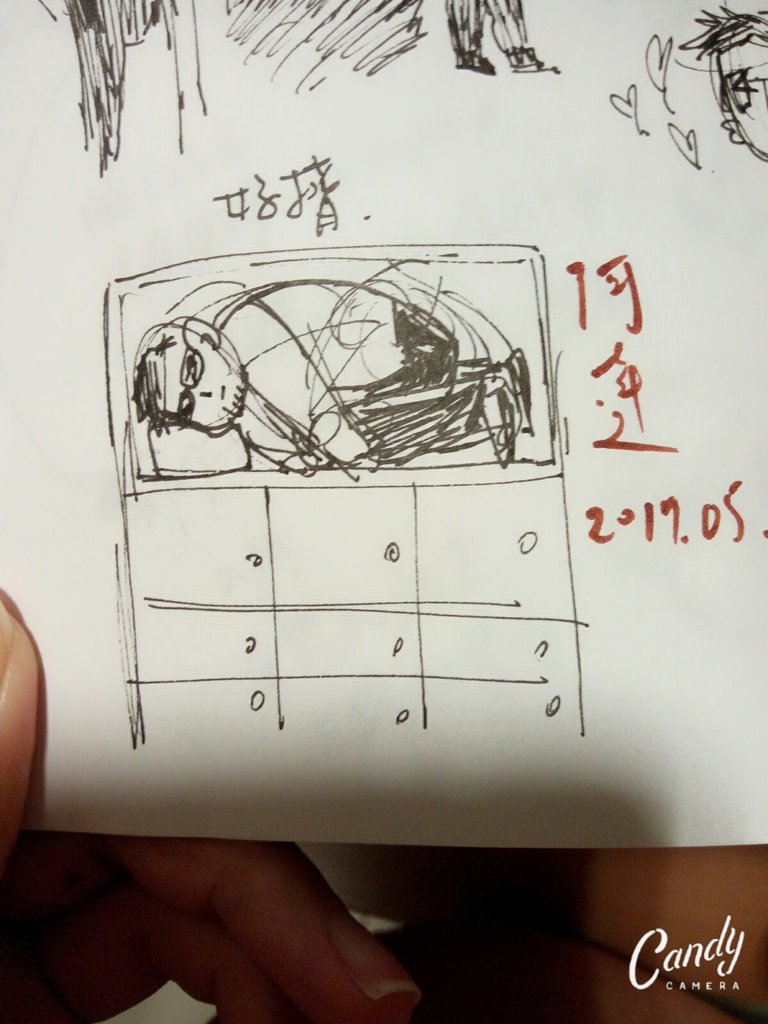 好擠.
阿達
2017.05.
Candy
CAMERA